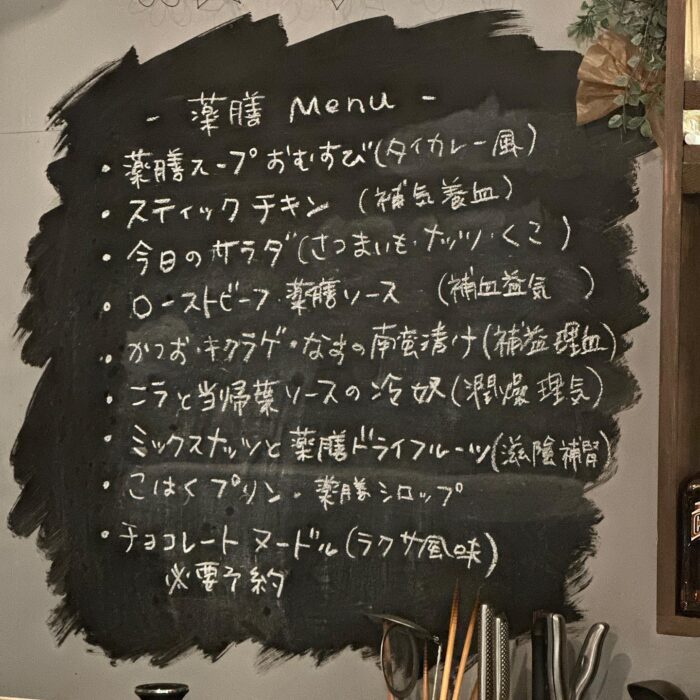 - 薬膳 Menu -
・薬膳スープ おむすび(タイカレー風)
・スティックチキン (補気養血)
・今日のサラダ(さつまいも・ナッツ・くこ)
・ローストビーフ 薬膳ソース (補血益気)
・かつお・キクラゲ・なすの南蛮漬け(補益理血)
・ニラと当帰葉ソースの冷奴(潤燥理気)
・ミックスナッツと薬膳ドライフルーツ(滋陰補腎)
・こはくプリン・薬膳シロップ
・チョコレートヌードル(ラクサ風味)
※要予約